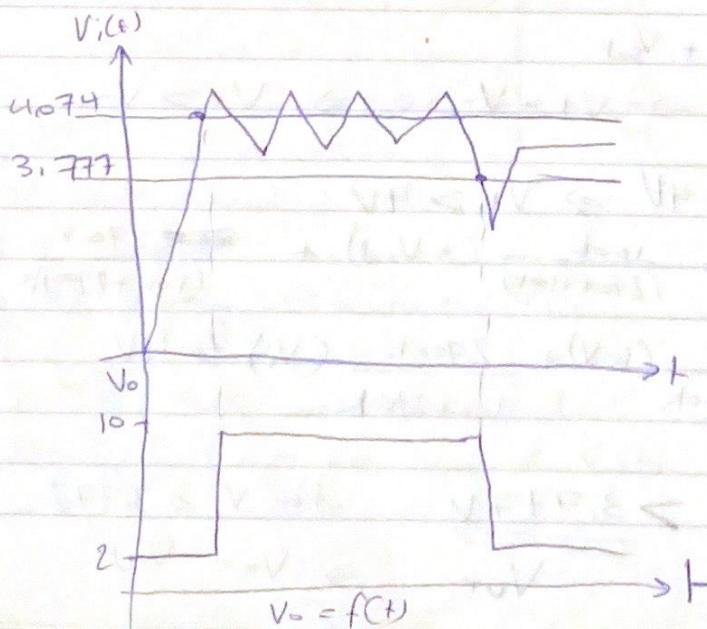 Vi(t)
4.074
3.777
t
Vo
10
2
t
Vo = f(t)